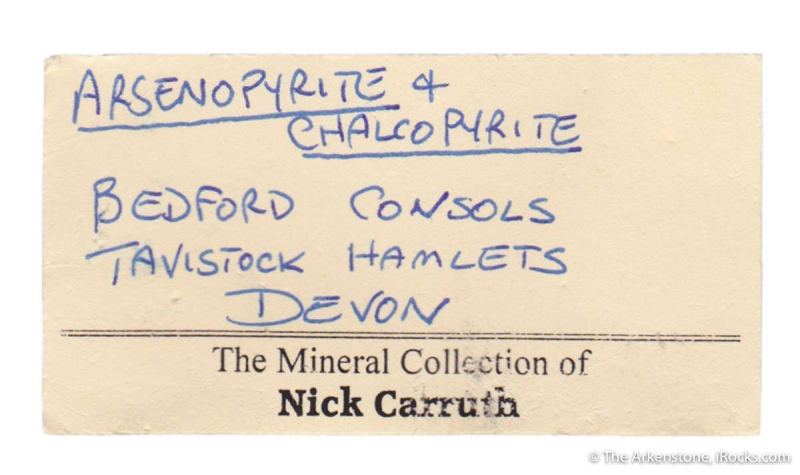 ARSENOPYRITE &
CHALCOPYRITE
BEDFORD CONSOLS
TAVISTOCK HAMLETS
DEVON
The Mineral Collection of
Nick Carruth
© The Arkenstone, iRocks.com